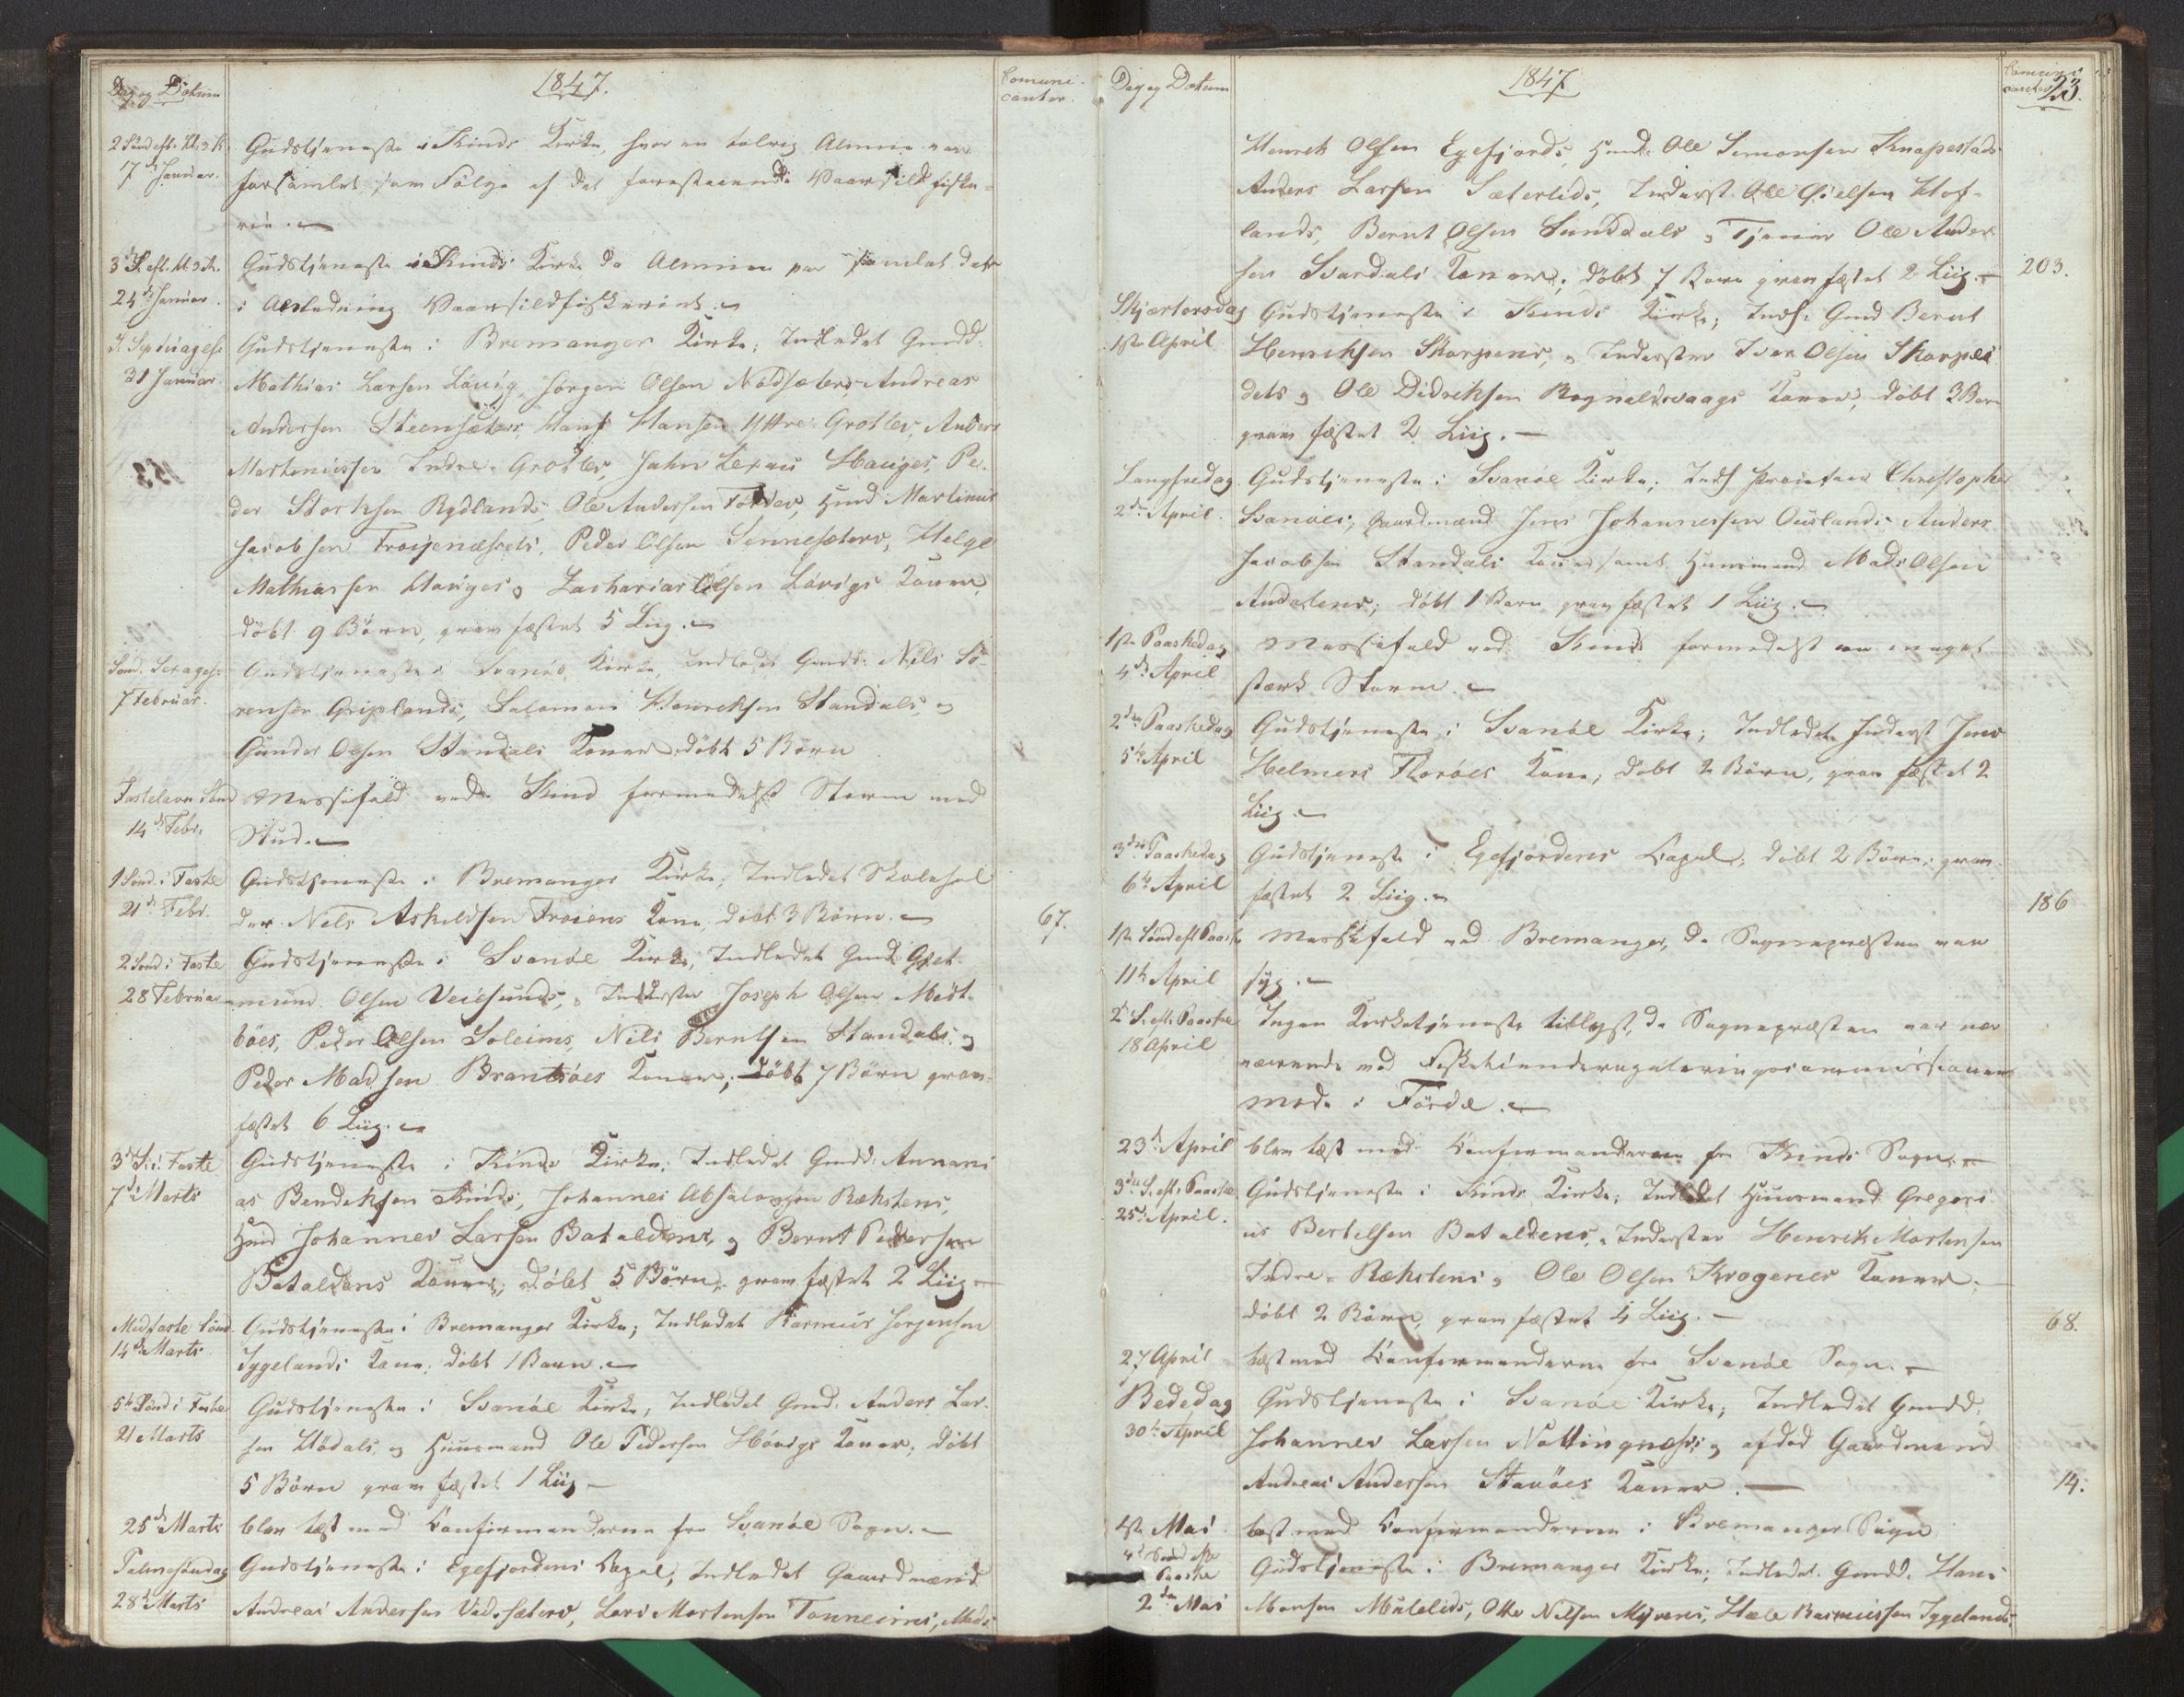 Dag og Datum
1847.
Comuni-
canter.
2 Sønd. eft. H. 3 K.
17de Januar.
Gudstjeneste i Kinds Kirke, hvor en talrig Almue var
forsamlet som Følge af det forestaaende Vaarsildfiske-
rie.
3de S. eft. H. 3 K.
24de Januar.
Gudstjeneste i Kinds Kirke da Almuen var samlet der
i Anledning Vaarsildfiskeriet.
S. Septuages:
31 Januar
Gudstjeneste i Bremanger Kirke; Indledet Gmdd.
Mathias Larsen Løvig, Jørgen Olsen Nordsæters, Andreas
Andersen Steensæters, Hans Hansen Yttre Grotles, Anders
Martinussen Indre-Grotles, John Hauges, Pe-
der Storksen Rydlands, Ole Andersen Førdes, Hmd Martinus
Jacobsen Froijenæssets, Peder Olsen Sennesæters, Helge
Mathiassen Hauges og Zacharias Olsen Løvigs Koner,
døbt 9 Børn, grav fæstet 5 Liig.
Sønd. Sexages:
7 Februar.
Gudstjeneste i Svanøe Kirke, Indledet Gmdd: Nils Sø-
rensen Griplands, Salomon Henriksen Standals, og
Gunder Olsen Standals Koner døbt 5 Børn
Fastelavn Sønd
14de Febr.
Messefald ved Kind formedelst Storm mod
Stud.
1 Sønd. i Faste
21de Febr.
Gudstjeneste i Bremanger Kirke; Indledet Skolehol
der Nils Askildsen Froiens Kone, døbt 3 Børn.
67.
2 Sønd i Faste
28 Februar
Gudstjeneste i Svanøe Kirke, Indledet Gmd
mund Olsen Veiesunds, Inderster Joseph Olsen Midt-
bøes, Peder Olsen Soleims, Nils Berntsen Standals og
Peder Madsen Brantsøes Koner; døbt 7 Børn grav-
fæstet 6 Liig.
3de S. i Faste
7de Marts
Gudstjeneste i Kinds Kirke; Indledet Gmdd: Annani
as Bendiksen Kinds, Johannes Absalonsen Rækstens,
Hmd Johannes Larsen Bataldens, og Bernt Pedersen
Bataldens Koner, døbt 5 Børn, grav fæstet 2 Liig
Midfaste Sønd.
14de Marts
Gudstjeneste i Bremanger Kirke; Indledet Rasmus Jørgensen
Iggelands Kone, døbt 1 Barn.
5te Sønd i Faste
21 Marts
Gudstjeneste i Svanøe Kirke, Indledet Gmd. Anders Lar-
sen Hødals, og Huusmand Ole Pedersen Høvigs Koner, døbt
5 Børn grav fæstet 1 Liig
25de Marts
blev læst med Confirmanderne fra Svanøe Sogn.
Palmesøndag
28de Marts
Gudstjeneste i Egefjordens Capel, Indledet Gaardmænd
Andreas Andersen Vadsæters, Lars Mortensen Tonneims, Mads
Dag og Datum
1847
Comuni-
canter
23.
Henrik Olsen Egefjords, Hmd: Ole Simonsen Knapestads
Anders Larsen Sæterlids, Inderst Ole Hof-
lands, Bernt Olsen Sunddals og Tjener Ole Ander
sen Svardals Koner; døbt 7 Børn grav fæstet 2 Liig.
203.
Skjærtorsdag
1ste April
Gudstjeneste i Kinds Kirke; Indl. Gmd Bernt
Henriksen Skorpens, og Inderster Iver Olsen Skorpes
dets og Ole Didriksen Rognaldsvaags Koner, døbt 3 Børn
grav fæstet 2 Liig.
Langfredag
2den April.
Gudstjeneste i Svanøe Kirke; Indl Christopher
Svanøes, Gaardmænd Jens Johannessen Ouslands, Anders
Jacobsen Standals Koner samt Huusmand Mads Olsen
Andalens; døbt 1 Barn grav fæstet 1 Liig.
1ste Paaskedag
4de April
Messefald ved Kinds formedelst en meget
stærk Storm.
2den Paaskedag
5te April
Gudstjeneste i Svanøe Kirke; Indledet Inderst Jens
Helmers Florøes Kone, døbt 2 Børn, grav fæstet 2
Liig.
3die Paaskedag
6te April
Gudstjeneste i Egefjordens Capel; døbt 2 Børn, grav-
fæstet 2 Liig.
186
1ste Sønd eft Paaske
11te April
Messefald ved Bremanger, da Sognepræsten var
syg.
2d S. eft. Paaske
18 April
Ingen Kirketjeneste tillyst, da Sognepræsten var nær
værende ved
Møde i Førde.
23de April
blev læst med Confirmanderne fra Kinds Sogn.
3die S. eft. Paaske
25de April.
Gudstjeneste i Kinds Kirke; Indledet Huusmand Gregori
us Bertelsen Bataldens, Inderster Henrik Mortensen
Indre-Rækstens og Ole Olsen Krogenes Koner.
døbt 2 Børn, grav fæstet 4 Liig.
68.
27 April
læst med Confirmanderne fra Svanøe Sogn.
Bededag
30te April
Gudstjeneste i Svanøe Kirke; Indledet Gmdd.
Johannes Larsen Nottingnæss og afdød Gaardmand
Andreas Andersen Stavøes Koner.
14.
1ste Mai
læst med Confirmanderne i Bremanger Sogn
4de Sønd efter
Paaske
2den Mai
Gudstjeneste i Bremanger Kirke; Indledet Gmdd. Hans
Monsen Mulelids, Otto Nilsen Myrens, Hæle Rasmussen Iggelands,